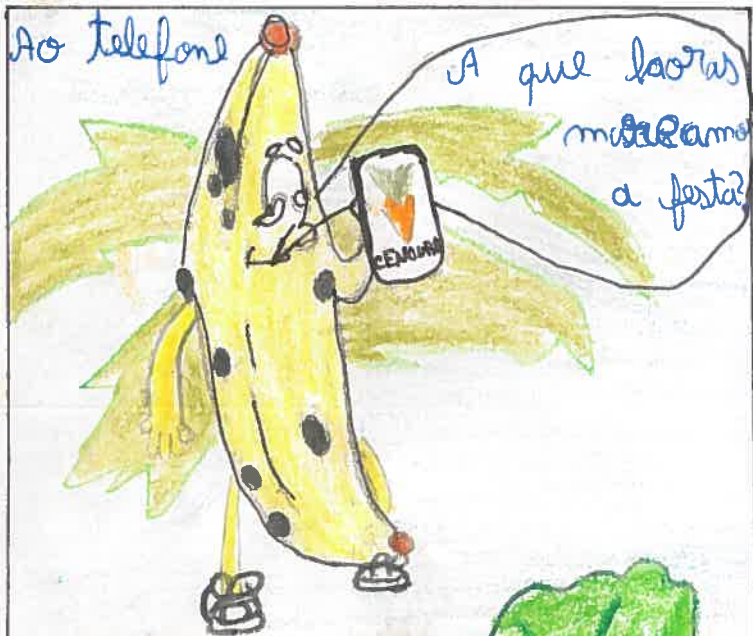 Ao telefone
A que horas
a festa?
CENOURA